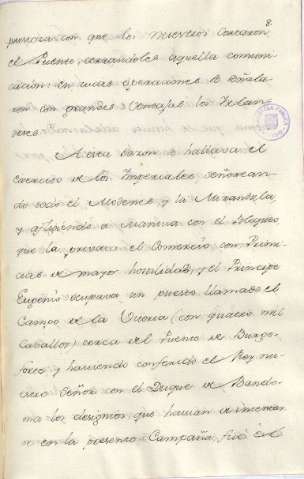 8
primicia con que los nuestros cercaron
el Puente, cerrandoles aquella comuni-
cacion: en cuias operaciones se señala-
ron con grandes ventajas los Irlan-
deses.
A esta sazon se hallava el
Exercito de los Imperiales señorean-
do todo el Modenes y la Mirandula,
y afligiendo a Mantua con el Bloqueo
que la privava el Comercio con Provin-
cias de mayor hostilidad, y el Principe
Eugenio ocupava un puesto llamado el
Campo de la Victoria (con quatro mil
Cavallos) cerca del Puente de Burgo-
forte; y haviendo conferido el Rey nu-
estro Señor con el Duque de Bando-
ma los designios que havian de intentar-
se en la presente Campaña, fue el